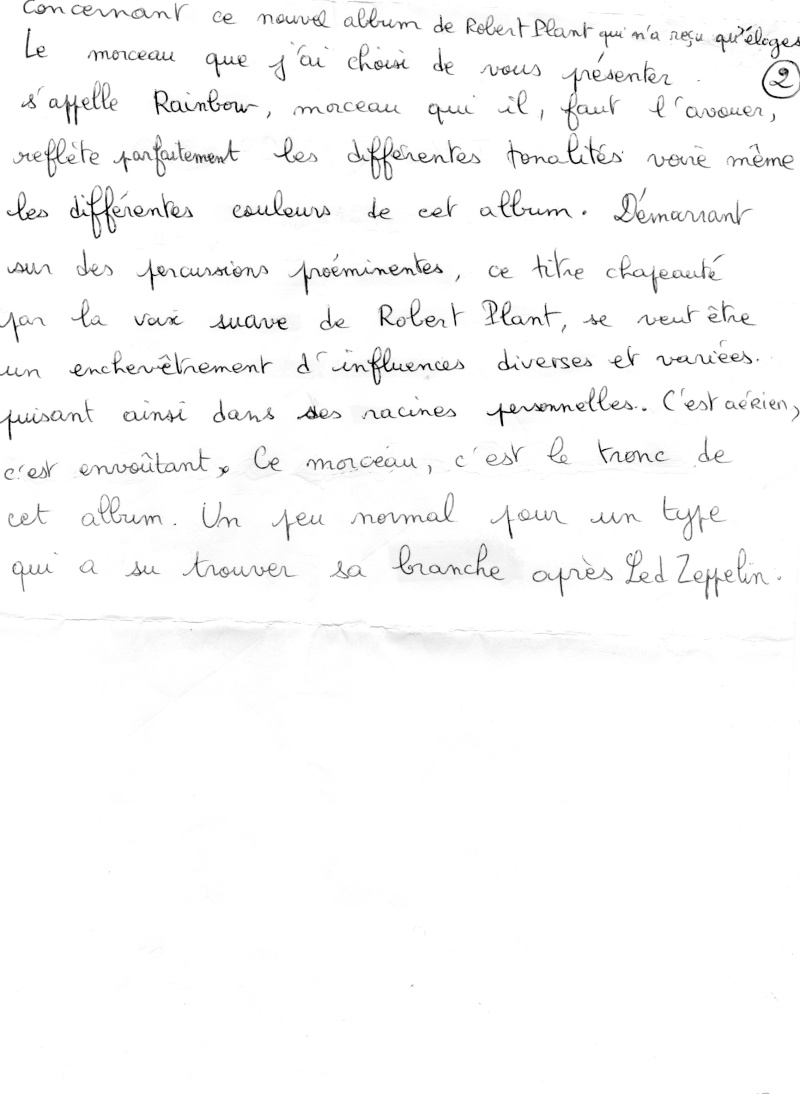 Concernant ce nouvel album de Robert Plant qui n'a reçu qu'éloges
Le morceau que j'ai choisi de vous présenter.
②
s'appelle Rainbow, morceau qui il, faut l'avouer,
reflète parfaitement les différentes tonalités voire même
les différentes couleurs de cet album. Démarrant
sur des percussions proéminentes, ce titre chapeauté
par la voix suave de Robert Plant, se veut être
un enchevêtrement d'influences diverses et variées.
puisant ainsi dans ses racines personnelles. C'est aérien,
c'est envoûtant, Ce morceau, c'est le tronc de
cet album. Un peu normal pour un type
qui a su trouver sa branche après Led Zeppelin.